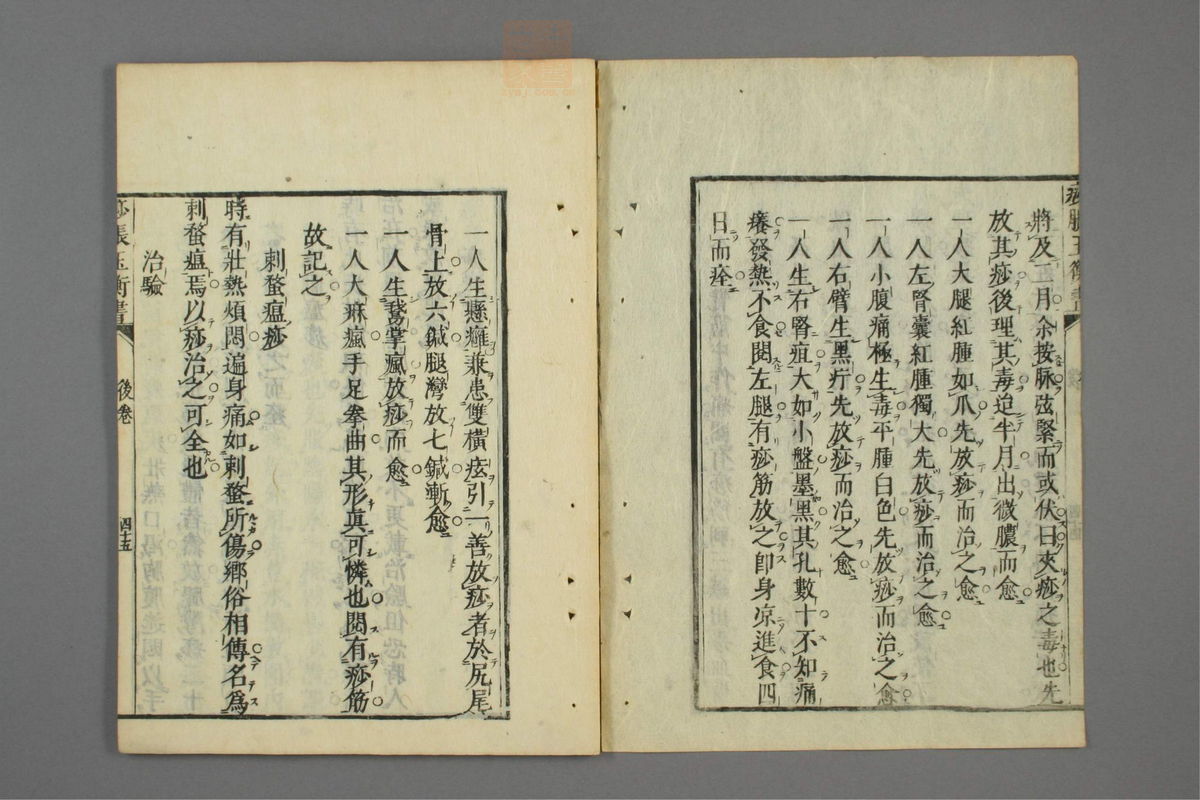 將及一月余按脉弦緊而或伏曰夾痧之毒也先
放其痧後理其毒迨半月出微膿而愈
一人大腿紅腫如爪先放痧而治之愈
一人左腎囊紅腫獨大先放痧而治之愈
一人小腹痛極生毒平腫白色先放痧而治之愈
一人右臂生黑疔先放痧而治之愈
一人生右腎疽大如小盤墨黑其孔數十不知痛
癢發熱不食閱左腿有痧筋放之卽身凉進食四
日而痊
一人生懸癰兼患雙橫痃引一善放痧者於尻尾
骨上放六鍼腿灣放七鍼漸愈
一人生鵝掌瘋放痧而愈
一人大麻瘋手足拳曲其形真可憐也閱有痧筋
故記之
刺蝥瘟痧
時有壯熱煩悶遍身痛如刺蝥所傷鄉俗相傳名爲
刺蝥瘟焉以痧治之可全也
治驗
痧脹玉衡書
後卷
四十五